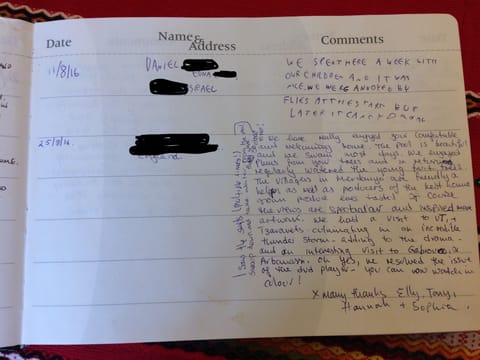 Date
Name &
Address
Comments
11/8/16
DANIEL
EDNA
ISRAEL
WE SPENT HERE A WEEK WITH
OUR CHILDREN AND IT WAS
NICE. WE WERE ANNOYED BY
FLIES AT THE START BUT
LATER IT CALMED DOWN
England
We have really enjoyed your comfortable
and welcoming home. The pool is beautiful
and we swam most days. We enjoyed
plums from your trees and in return
regularly watered the young fruit trees.
The villagers in are friendly &
helpful as well as producers of the best home
grown produce ever tasted! Of course
the views are spectacular and inspired more
artwork. We had a visit to V.T. &
Tzaravets culminating in an incredible
thunder storm - adding to the drama -
and an interesting visit to Gabrovo &
Arbanassi. Oh yes, we resolved the issue
of the dvd player - you can now watch in
colour!
x many thanks Elly, Tony,
Hannah + Sophia.